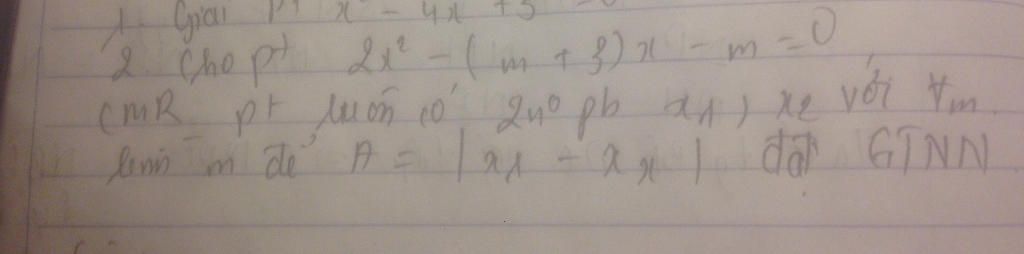 1. Giải pt x² - 4x + 3
2. Cho pt 2x² - (m + 3)x - m = 0
CMR pt luôn có 2n⁰ pb x₁, x₂ với ∀m
tìm m để A = |x₁ - xₓ| đạt GTNN